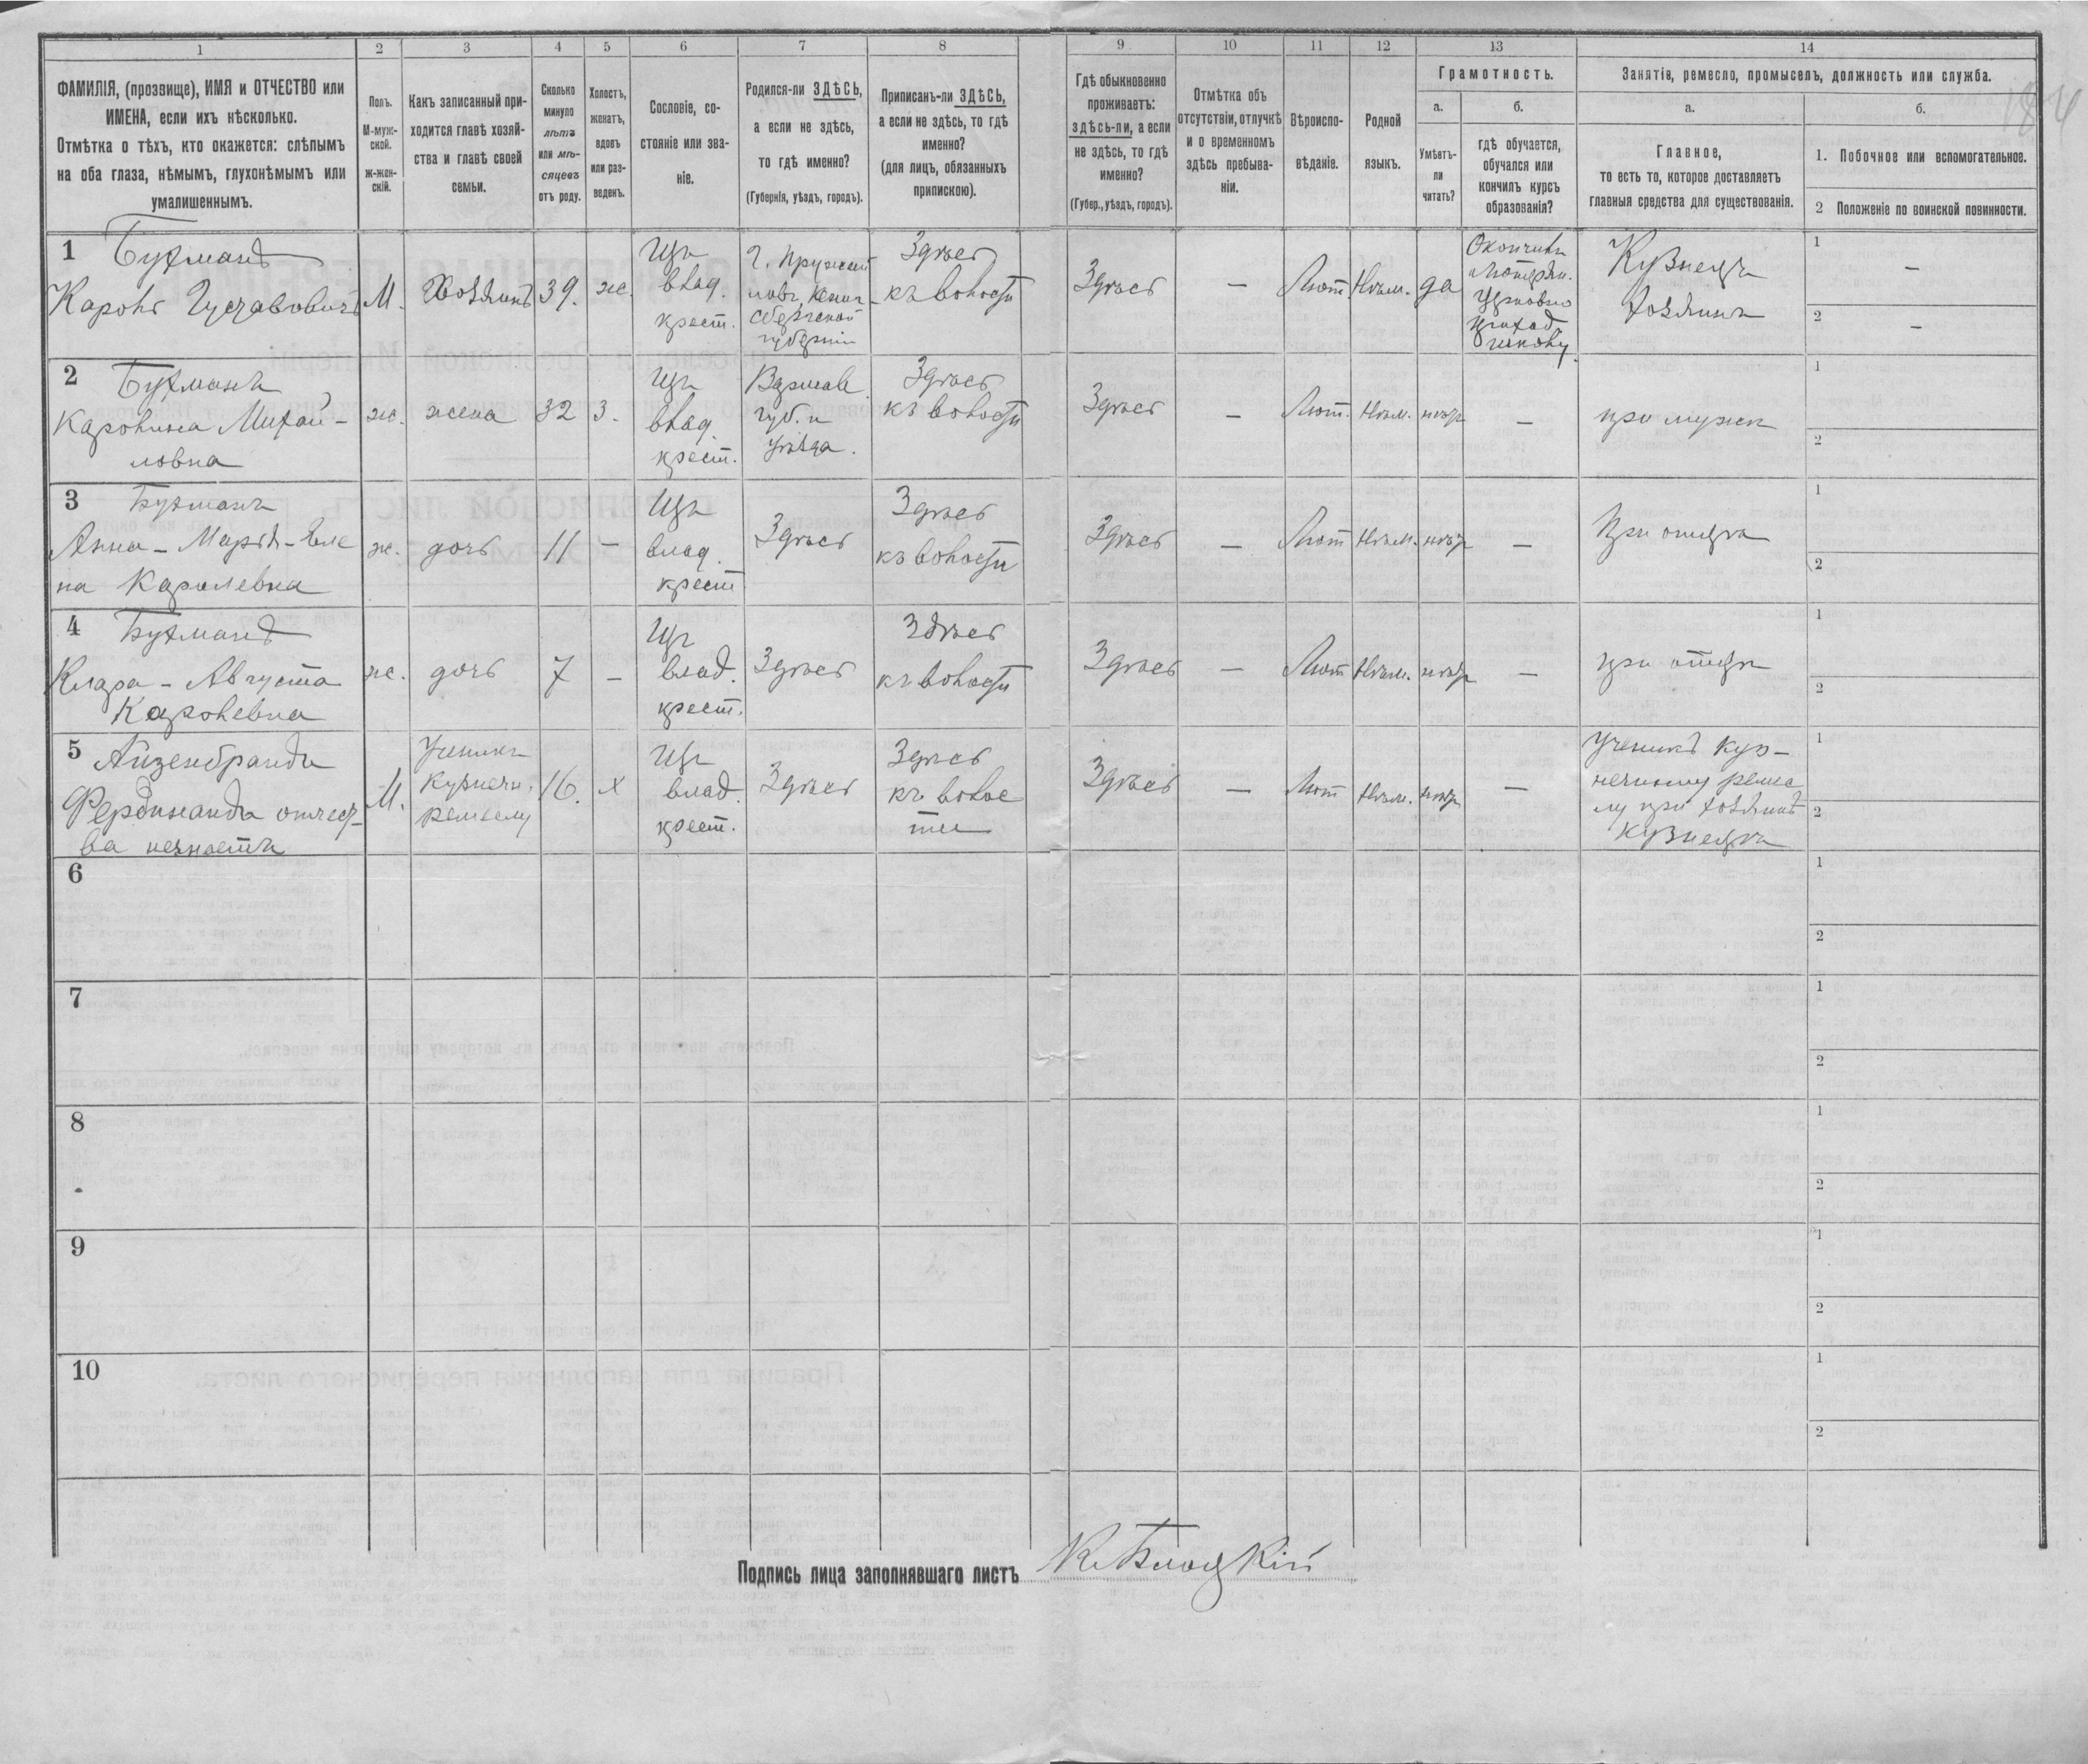 1 2 3 4 5 6 7 8 9 10 11 12 13 14
ФАМИЛІЯ, (прозвище), ИМЯ и ОТЧЕСТВО или
ИМЕНА, если ихъ нѣсколько.
Отмѣтка о тѣхъ, кто окажется: слѣпымъ
на оба глаза, нѣмымъ, глухонѣмымъ или
умалишеннымъ.
Полъ.
М-муж-
ской.
ж-жен-
скій.
Какъ записанный при-
ходится главѣ хозяй-
ства и главѣ своей
семьи.
Сколько
минуло
лѣтъ
или мѣ-
сяцевъ
отъ роду.
Холостъ,
женатъ,
вдовъ
или раз-
веденъ.
Сословіе, со-
стояніе или зва-
ніе.
Родился-ли ЗДѢСЬ,
а если не здѣсь,
то гдѣ именно?
(Губернія, уѣздъ, городъ).
Приписанъ-ли ЗДѢСЬ,
а если не здѣсь, то гдѣ
именно?
(для лицъ, обязанныхъ
припискою).
Гдѣ обыкновенно
проживаетъ:
здѣсь-ли, а если
не здѣсь, то гдѣ
именно?
(Губер., уѣздъ, городъ).
Отмѣтка объ
отсутствіи, отлучкѣ
и о временномъ
здѣсь пребыва-
ніи.
Вѣроиспо-
вѣданіе.
Родной
языкъ.
Грамотность.
а.
Умѣетъ-
ли
читать?
б.
гдѣ обучается,
обучался или
кончилъ курсъ
образованія?
Занятіе, ремесло, промыселъ, должность или служба.
а.
Главное,
то есть то, которое доставляетъ
главныя средства для существованія.
б.
1. Побочное или вспомогательное.
2 Положеніе по воинской повинности.
1 Бухманъ
Кароль Густавовичъ
М.
Хозяинъ
39.
ж.
влад.
крест.
губерніи
Здѣсь
къ волости
Здѣсь
—
Лют
Нѣм.
да
Кузнецъ
хозяинъ
1 —
2 —
2 Бухманъ
Каролина Михай-
ловна
ж.
жена
32
З.
влад.
крест.
Варшав.
губ. и
уѣзда.
Здѣсь
къ волости
Здѣсь
—
Лют.
Нѣм.
нѣтъ
—
при мужѣ
1
2
3 Бухманъ
Анна-Марія-Еле
на Каролевна
ж.
дочь
11
—
влад.
крест
Здѣсь
Здѣсь
къ волости
Здѣсь
—
Лют
Нѣм.
нѣтъ
—
при отцѣ
1
2
4 Бухманъ
Клара-Августа
Каролевна
ж.
дочь
7
—
влад.
крест.
Здѣсь
Здѣсь
къ волости
Здѣсь
—
Лют
Нѣм.
нѣтъ
—
при отцѣ
1
2
5 Айзенбрандъ
Фердинандъ отчест-
ва
М.
Ученикъ
кузнечн.
ремеслу
16.
х
влад.
крест.
Здѣсь
Здѣсь
къ волос
ти
Здѣсь
—
Лют
Нѣм.
нѣтъ
—
Ученикъ куз-
нечному ремес
лу при хозяинѣ
кузнецѣ
1
2
6
1
2
7
1
2
8
1
2
9
1
2
10
1
2
Подпись лица заполнявшаго листъ